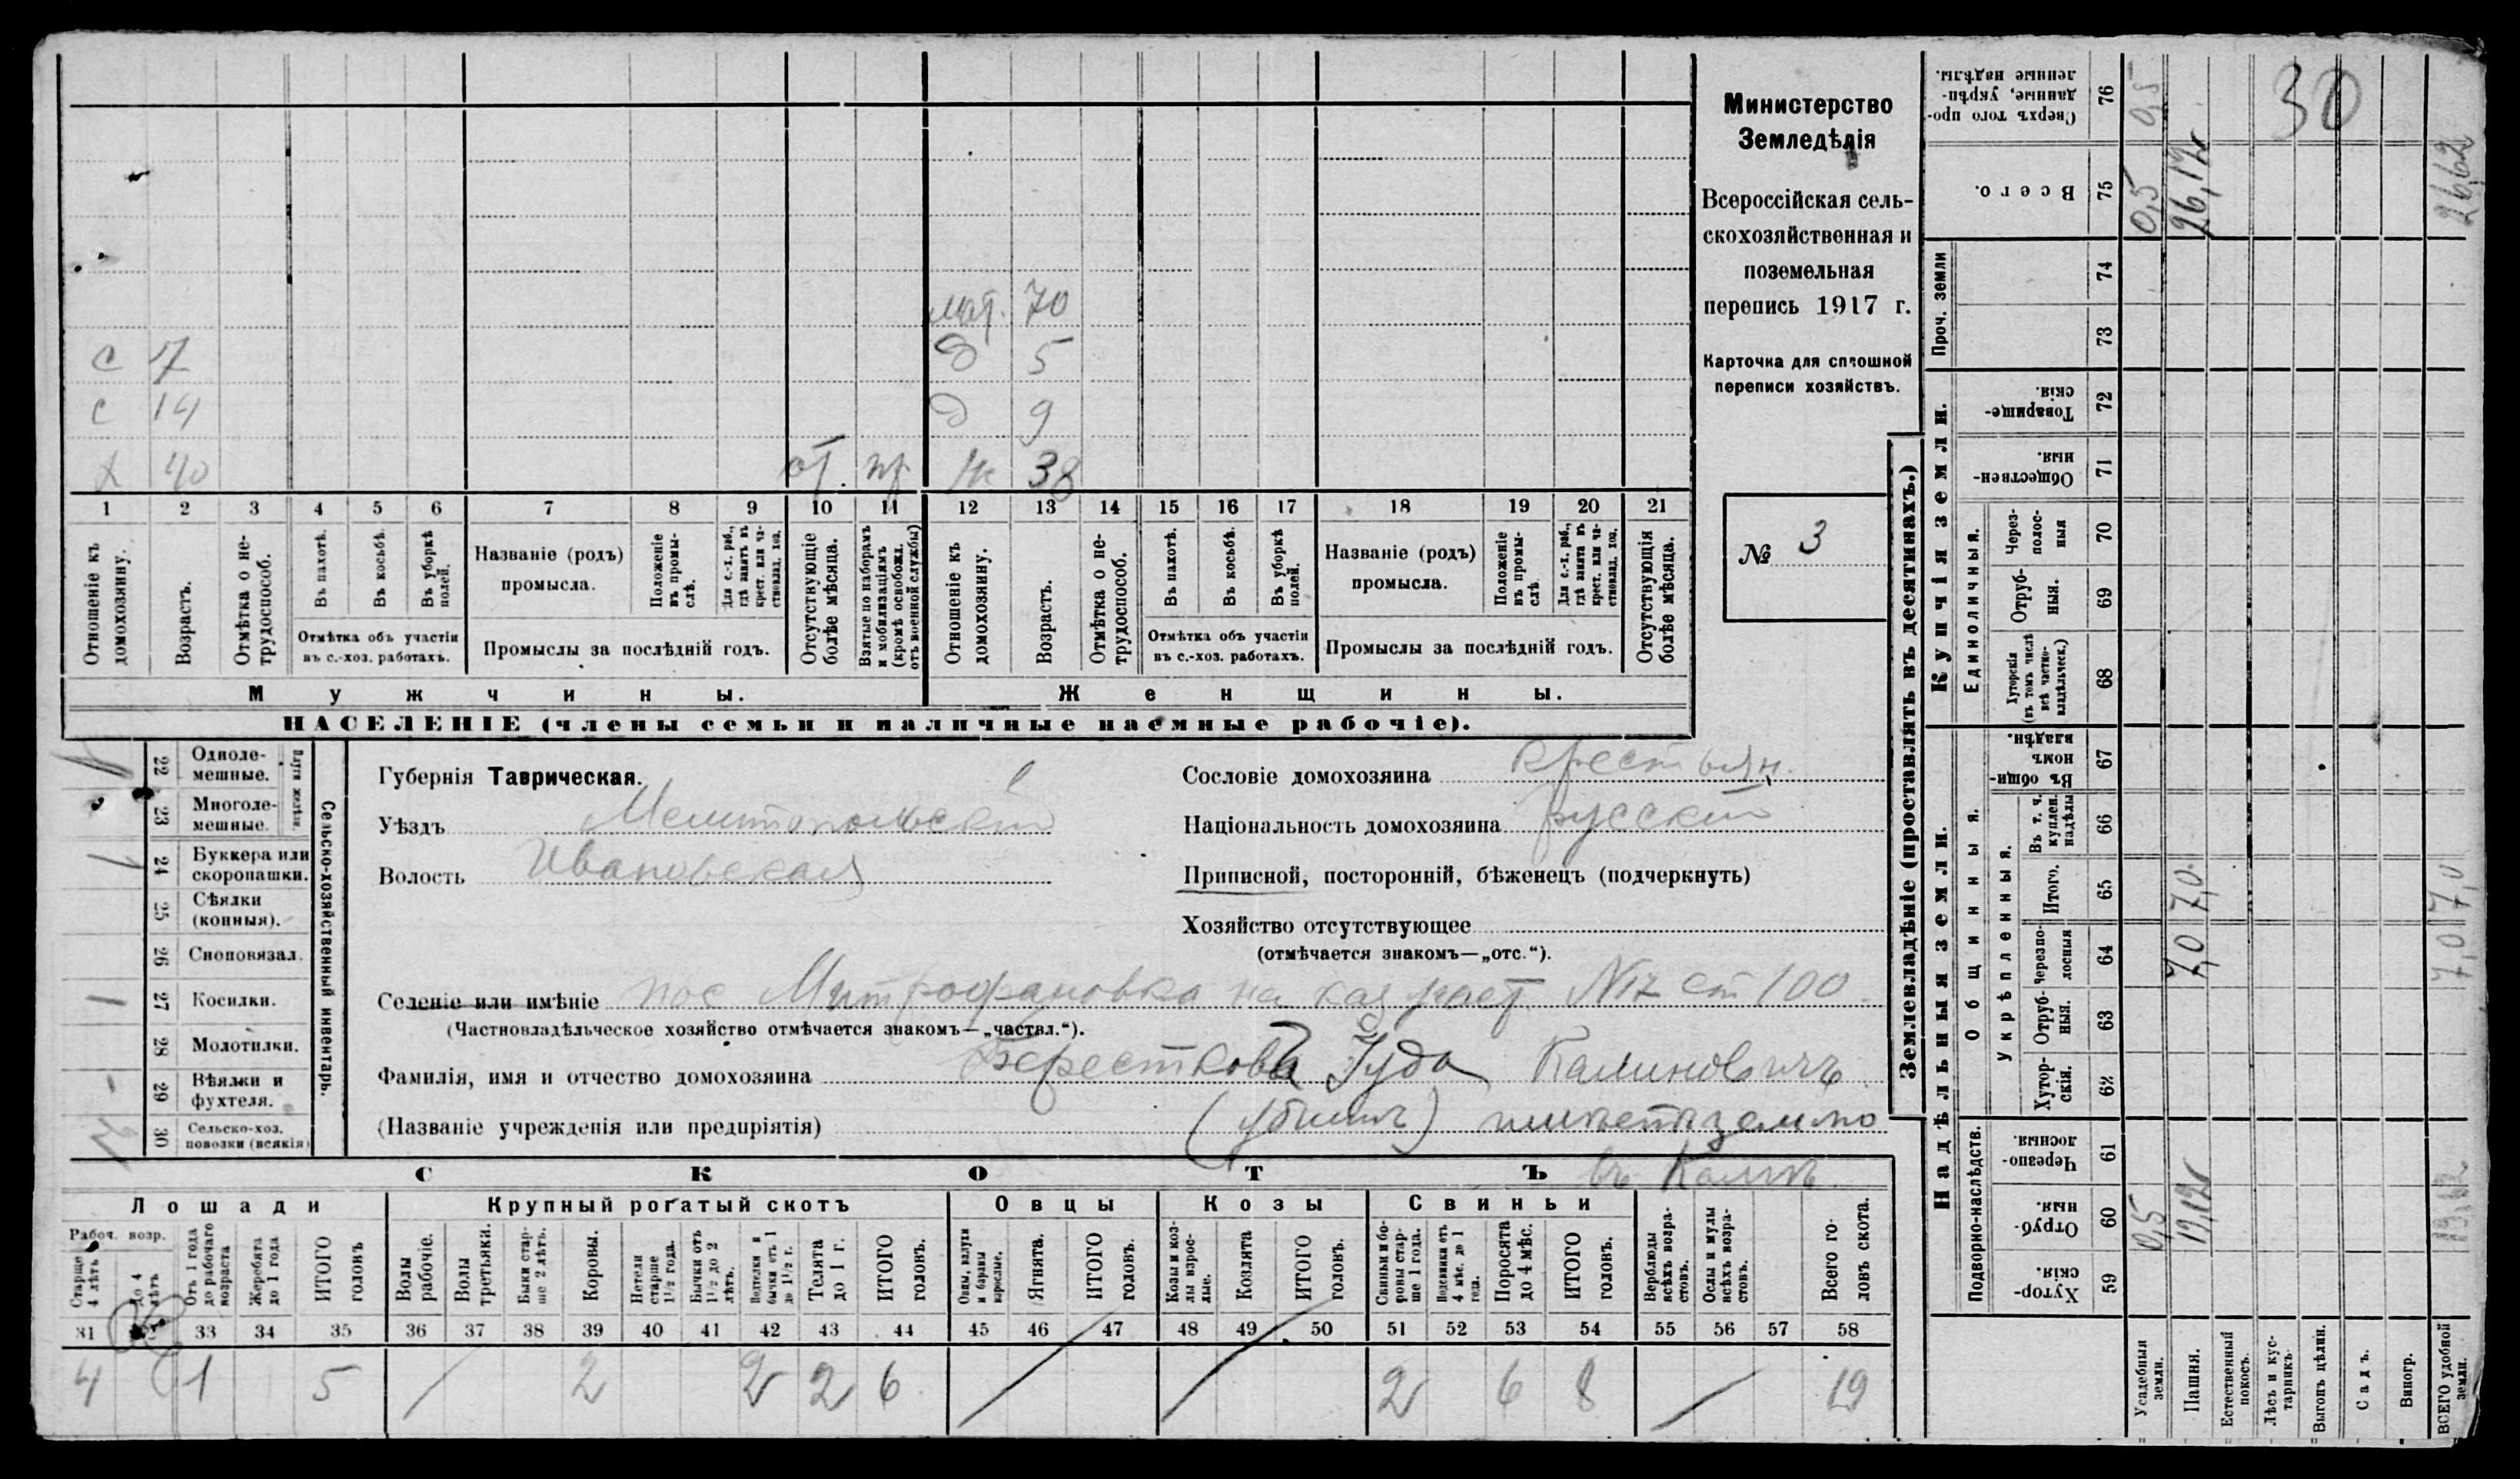 мат. 70
с 7 д 5
с 14 д 9
х 40 от. пр. ж 38
1 2 3 4 5 6 7 8 9 10 11 12 13 14 15 16 17 18 19 20 21
Отношеніе къ домохозяину.
Возрастъ.
Отмѣтка о не-
трудоспособ.
Въ пахотѣ.
Въ косьбѣ.
Въ уборкѣ
полей.
Отмѣтка объ участіи
въ с.-хоз. работахъ.
Названіе (родъ)
промысла.
Положеніе
въ промы-
слѣ.
Для с.-х. раб.,
гдѣ занятъ въ
крест. или ча-
стновлад. хоз.
Промыслы за послѣдній годъ.
Отсутствующіе
болѣе мѣсяца.
Взятые по наборамъ
и мобилизаціямъ
(кромѣ освобожд.
отъ военной службы)
Отношеніе къ
домохозяину.
Возрастъ.
Отмѣтка о не-
трудоспособ.
Въ пахотѣ.
Въ косьбѣ.
Въ уборкѣ
полей.
Отмѣтка объ участіи
въ с.-хоз. работахъ.
Названіе (родъ)
промысла.
Положеніе
въ промы-
слѣ.
Для с.-х. раб.,
гдѣ занята въ
крест. или ча-
стновлад. хоз.
Промыслы за послѣдній годъ.
Отсутствующія
болѣе мѣсяца.
Мужчины.
Женщины.
НАСЕЛЕНІЕ (члены семьи и наличные наемные рабочіе).
Министерство
Земледѣлія
Всероссійская сель-
скохозяйственная и
поземельная
перепись 1917 г.
Карточка для сплошной
переписи хозяйствъ.
№ 3
22 Одноле-
мешные.
23 Многоле-
мешные.
Плуги желѣзн.
24 Буккера или
скоропашки.
25 Сѣялки
(конныя).
26 Сноповязал.
27 Косилки.
28 Молотилки.
29 Вѣялки и
фухтеля.
30 Сельско-хоз.
повозки (всякія)
Сельско-хозяйственный инвентарь.
Губернія Таврическая.
Уѣздъ Мелитопольскій
Волость Ивановская
Сословіе домохозяина крестьян.
Національность домохозяина русскій
Приписной, посторонній, бѣженецъ (подчеркнуть)
Хозяйство отсутствующее
(отмѣчается знакомъ—„отс.“).
Селеніе или имѣніе пос Митрофановка на каз. уч. № 17 ст 100
(Частновладѣльческое хозяйство отмѣчается знакомъ—„частвл.“).
Фамилія, имя и отчество домохозяина Берестовъ Іуда Калиновичъ
(Названіе учрежденія или предпріятія) (убитъ) имѣетъ землю
СКОТЪ
Лошади
Рабоч. возр.
Старше
4 лѣтъ
до 4
лѣтъ
Отъ 1 года
до рабочаго
возраста
Жеребята
до 1 года
ИТОГО
головъ
Крупный рогатый скотъ
Волы
рабочіе.
Волы
третьяки.
Быки стар-
ше 2 лѣтъ.
Коровы.
Нетели
старше
1½ года.
Бычки отъ
1½ до 2
лѣтъ.
Подтелки и
бычки отъ 1
до 1½ г.
Телята
до 1 г.
ИТОГО
головъ.
Овцы
Овцы, валухи
и бараны
взрослые.
Ягнята.
ИТОГО
головъ.
Козы
Козы и коз-
лы взрос-
лые.
Козлята
ИТОГО
головъ.
Свиньи
Свиньи и бо-
ровы стар-
ше 1 года.
Подсвинки отъ
4 мѣс. до 1
года.
Поросята
до 4 мѣс.
ИТОГО
головъ.
Верблюды
всѣхъ возра-
стовъ.
Ослы и мулы
всѣхъ возра-
стовъ.
Всего го-
ловъ скота.
31 32 33 34 35 36 37 38 39 40 41 42 43 44 45 46 47 48 49 50 51 52 53 54 55 56 57 58
4 1 5 2 2 2 6 2 6 8 19
Землевладѣніе (проставлять въ десятинахъ.)
Купчія земли.
Надѣльныя земли.
Сверхъ того про-
данные, укрѣп-
ленные надѣлы. 76 0,5 30
Всего. 75 0,5 26,12 26,62
Проч. земли
74
73
Товарище-
скія. 72
Обществен-
ныя. 71
Единоличныя.
Через-
полос-
ныя 70
Отруб-
ныя. 69
Хуторскія
(въ томъ числѣ
всѣ частно-
владѣльческ.) 68
Общинныя.
Въ общин-
номъ
владѣн. 67
Укрѣпленныя.
Въ т. ч.
куплен.
надѣлы 66
Итого. 65 7,0 7,0
Черезпо-
лосныя 64 7,0 7,0
Отруб-
ныя. 63
Хутор-
скія. 62
Подворно-наслѣдств.
Черезпо-
лосныя. 61
Отруб-
ныя. 60 0,5 19,12 19,62
Хутор-
скія. 59
Усадебныя
земли.
Пашня.
Естественный
покосъ.
Лѣсъ и кус-
тарникъ.
Выгонъ цѣлин.
Садъ.
Виногр.
ВСЕГО удобной
земли.